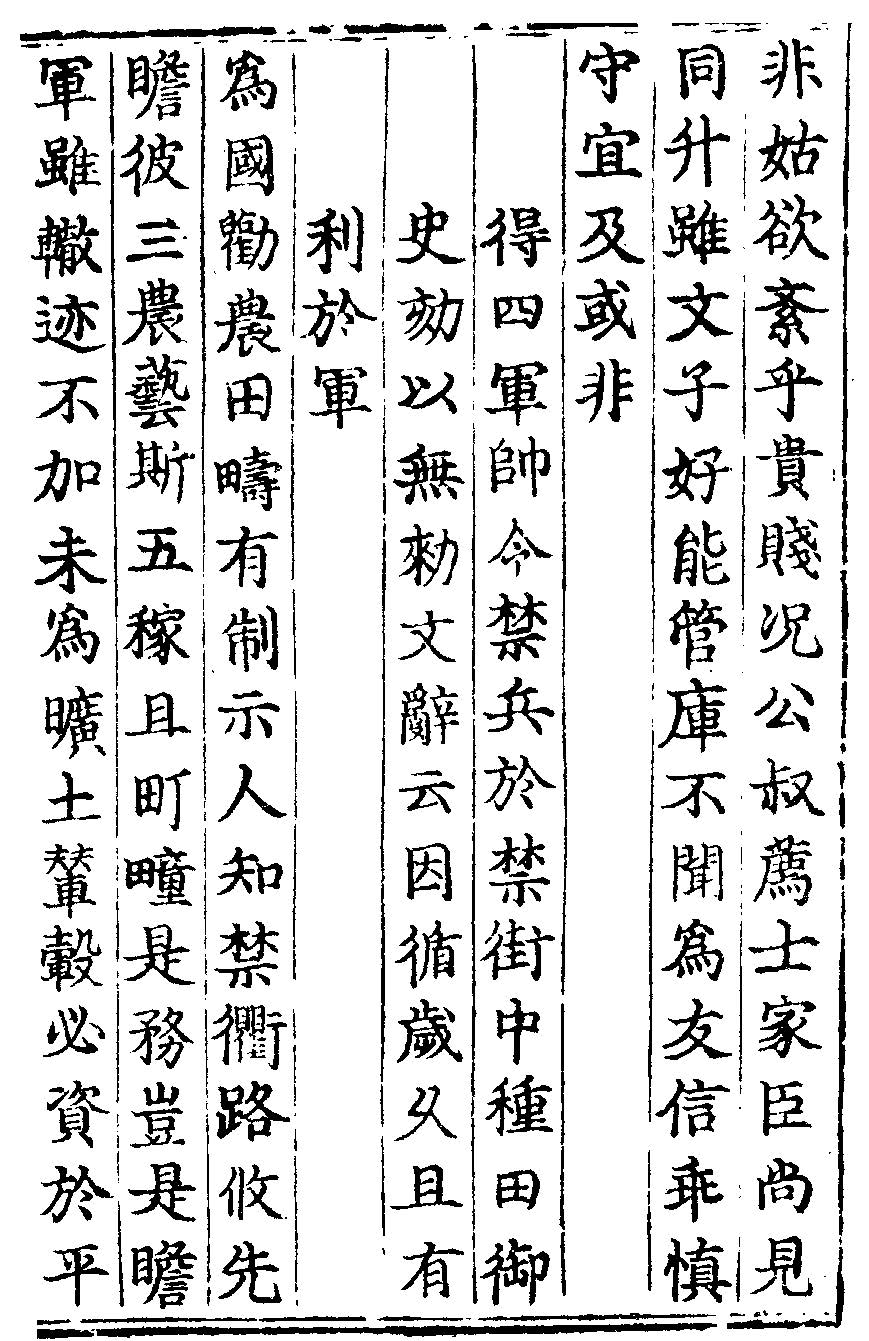 非姑欲紊乎貴賤况公叔薦士家臣尚見
同升雖文子好能管庫不聞爲友信乖慎
守宜及或非
得四軍帥令禁兵於禁街中種田御
史劾以無勑文辭云因循歲乆且有
利於軍
爲國勸農田疇有制示人知禁衢路攸先
瞻彼三農藝斯五稼且町疃是務豈是瞻
軍雖轍迹不加未爲曠土輦轂必資於平